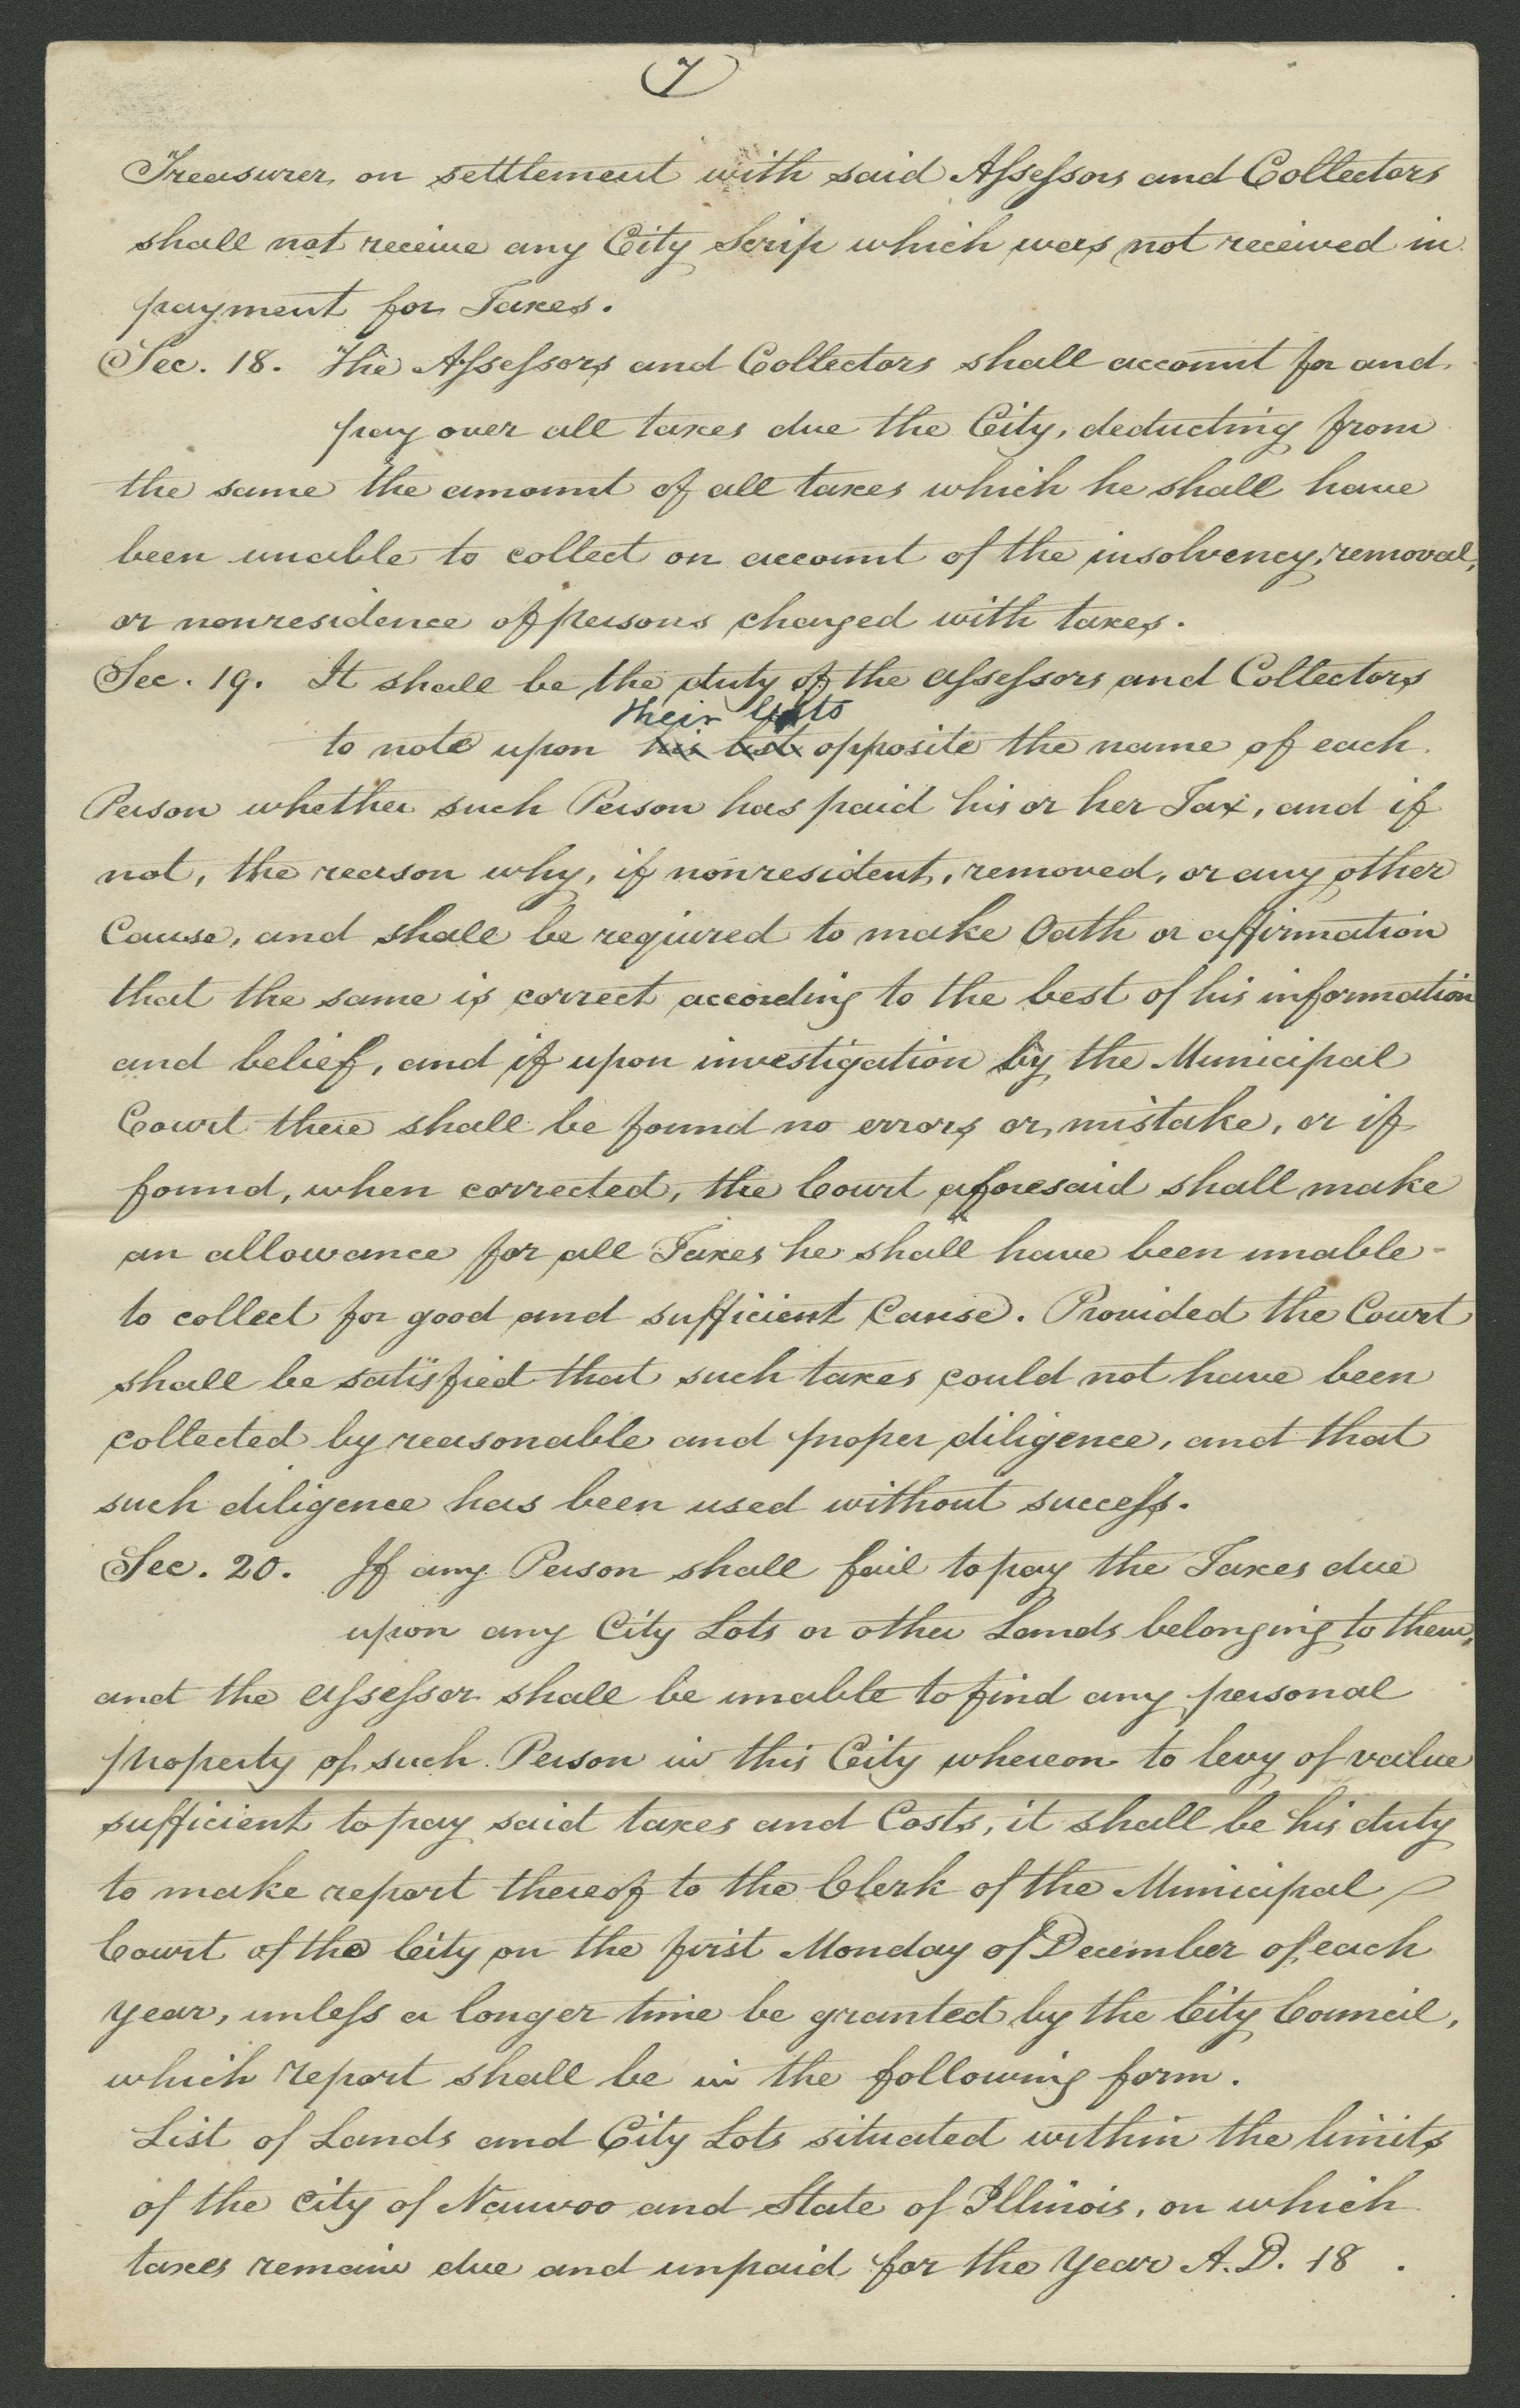 7
Treasurer, on settlement with said Assessors and Collectors
shall not receive any City Scrip which was not received in
payment for Taxes.
Sec. 18. The Assessors and Collectors shall account for and
pay over all taxes due the City, deducting from
the same the amount of all taxes which he shall have
been unable to collect on account of the insolvency, removal,
or nonresidence of persons charged with taxes.
Sec. 19. It shall be the duty of the assessors and Collectors
their lists
to note upon his list opposite the name of each
Person whether such Person has paid his or her Tax, and if
not, the reason why, if nonresident, removed, or any other
Cause, and shall be required to make Oath or affirmation
that the same is correct according to the best of his information
and belief, and if upon investigation by the Municipal
Court there shall be found no errors or mistake, or if
found, when corrected, the Court aforesaid shall make
an allowance for all Taxes he shall have been unable
to collect for good and sufficient Cause. Provided the Court
shall be satisfied that such taxes could not have been
collected by reasonable and proper diligence, and that
such diligence has been used without success.
Sec. 20. If any Person shall fail to pay the Taxes due
upon any City Lots or other Lands belonging to them,
and the assessor shall be unable to find any personal
property of such Person in this City whereon to levy of value
sufficient to pay said taxes and Costs, it shall be his duty
to make report thereof to the Clerk of the Municipal
Court of the City on the first Monday of December of each
year, unless a longer time be granted by the City Council,
which report shall be in the following form.
List of Lands and City Lots situated within the limits
of the City of Nauvoo and State of Illinois, on which
taxes remain due and unpaid for the Year A.D. 18 .